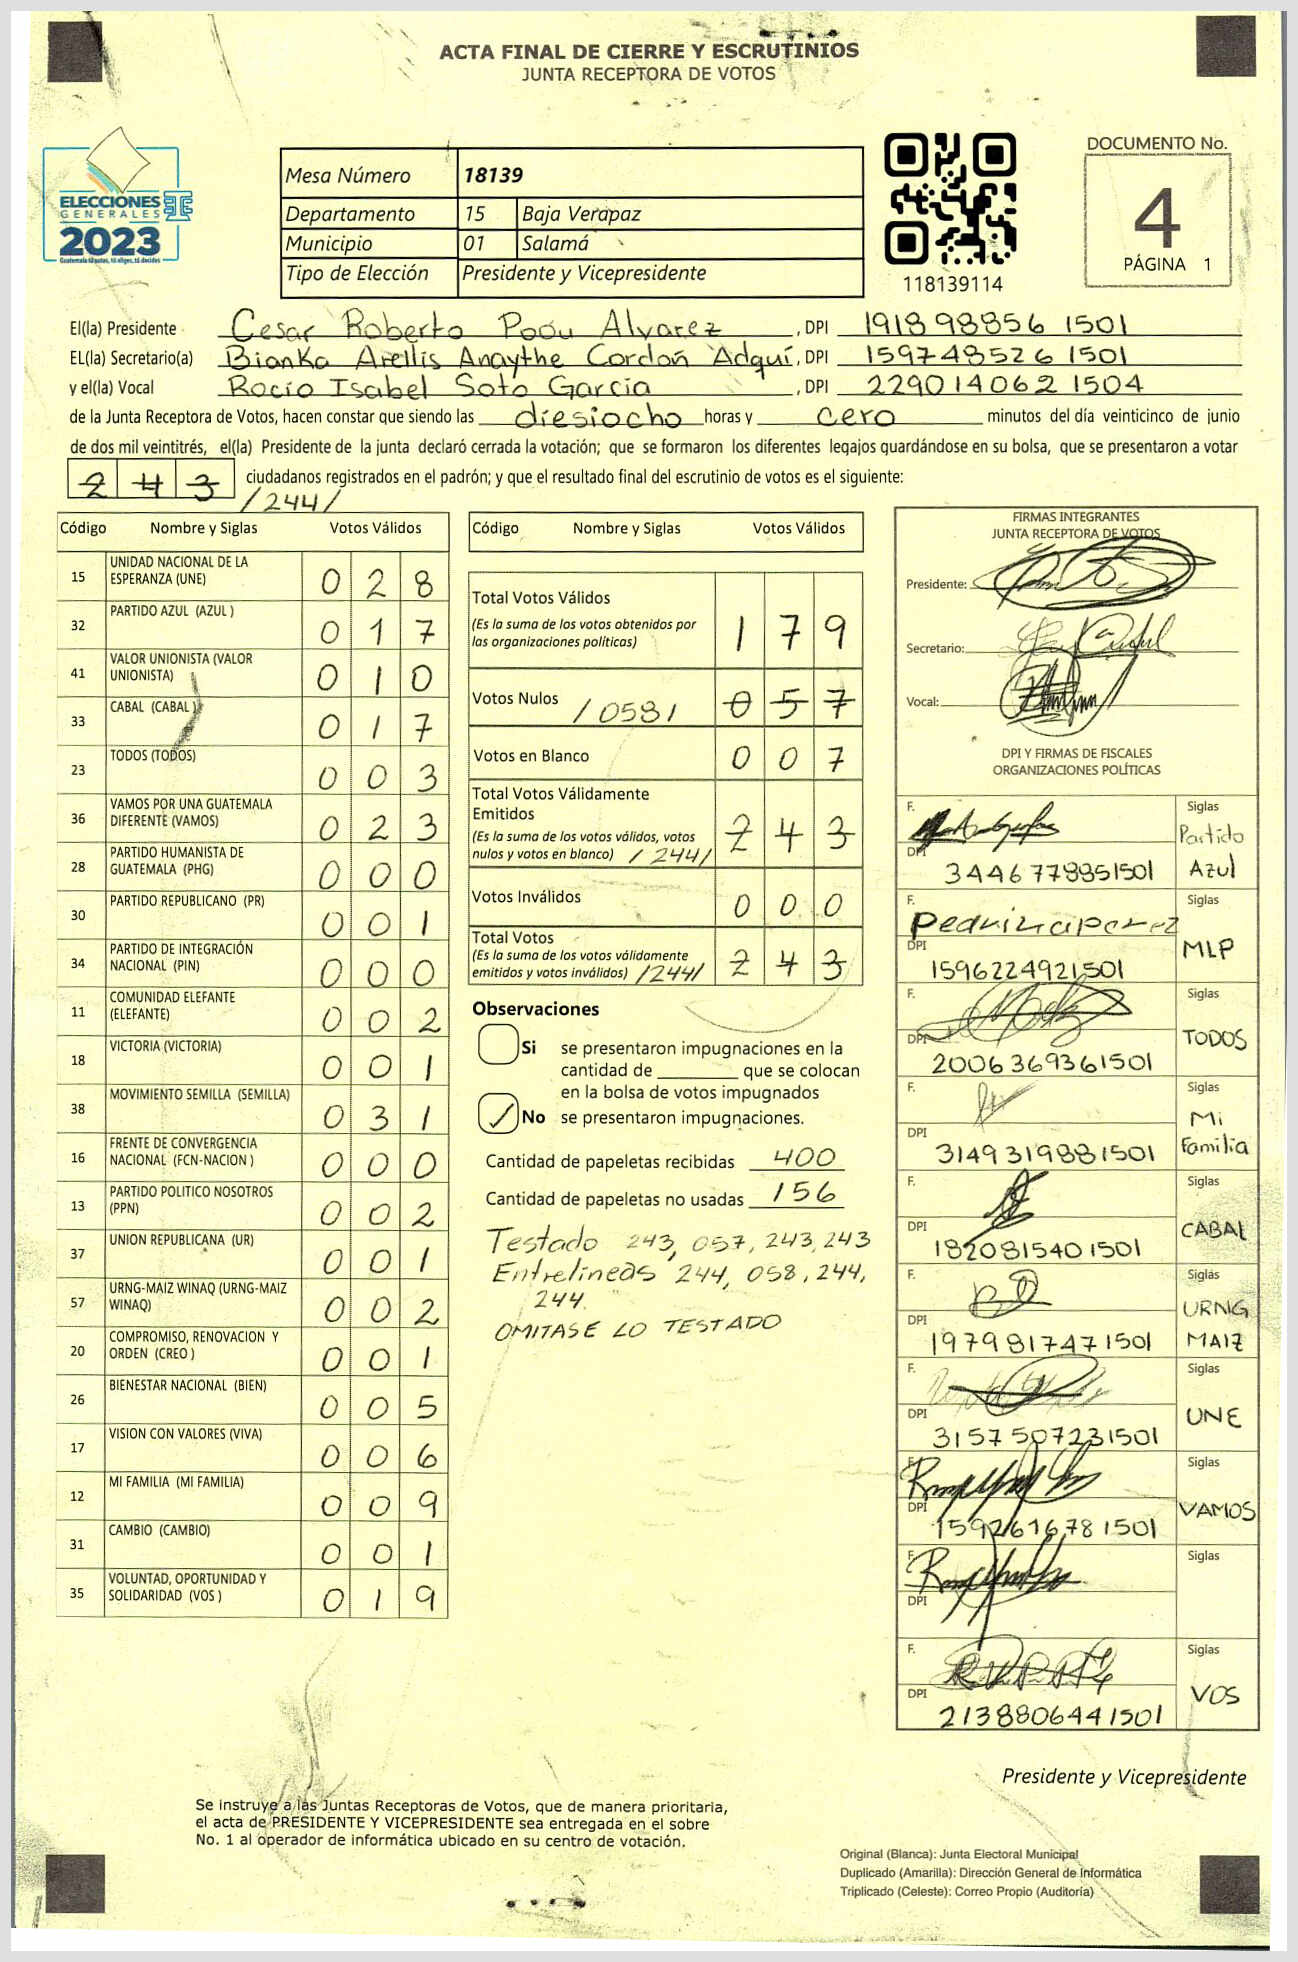 ACTA FINAL DE CIERRE Y ESCRUTINIOS
JUNTA RECEPTORA DE VOTOS
ELECCIONES
GENERALES
2023
Guatemala tú potes, tú eliges, tú decides
Mesa Número 18139
Departamento 15 Baja Verapaz
Municipio 01 Salamá
Tipo de Elección Presidente y Vicepresidente
118139114
DOCUMENTO No.
4
PÁGINA 1
El(la) Presidente Cesar Roberto Poou Alvarez, DPI 1918 98856 1501
EL(la) Secretario(a) Bianka Arellis Anaythe Cordón Adquí, DPI 159748526 1501
y el(la) Vocal Rocío Isabel Soto García, DPI 229014062 1504
de la Junta Receptora de Votos, hacen constar que siendo las diesiocho horas y cero minutos del día veinticinco de junio
de dos mil veintitrés, el(la) Presidente de la junta declaró cerrada la votación; que se formaron los diferentes legajos guardándose en su bolsa, que se presentaron a votar
243 ciudadanos registrados en el padrón; y que el resultado final del escrutinio de votos es el siguiente:
/244/
Código Nombre y Siglas Votos Válidos
15 UNIDAD NACIONAL DE LA ESPERANZA (UNE) 028
32 PARTIDO AZUL (AZUL ) 017
41 VALOR UNIONISTA (VALOR UNIONISTA) 010
33 CABAL (CABAL ) 017
23 TODOS (TODOS) 003
36 VAMOS POR UNA GUATEMALA DIFERENTE (VAMOS) 023
28 PARTIDO HUMANISTA DE GUATEMALA (PHG) 000
30 PARTIDO REPUBLICANO (PR) 001
34 PARTIDO DE INTEGRACIÓN NACIONAL (PIN) 000
11 COMUNIDAD ELEFANTE (ELEFANTE) 002
18 VICTORIA (VICTORIA) 001
38 MOVIMIENTO SEMILLA (SEMILLA) 031
16 FRENTE DE CONVERGENCIA NACIONAL (FCN-NACION ) 000
13 PARTIDO POLITICO NOSOTROS (PPN) 002
37 UNION REPUBLICANA (UR) 001
57 URNG-MAIZ WINAQ (URNG-MAIZ WINAQ) 002
20 COMPROMISO, RENOVACION Y ORDEN (CREO ) 001
26 BIENESTAR NACIONAL (BIEN) 005
17 VISION CON VALORES (VIVA) 006
12 MI FAMILIA (MI FAMILIA) 009
31 CAMBIO (CAMBIO) 001
35 VOLUNTAD, OPORTUNIDAD Y SOLIDARIDAD (VOS ) 019
Código Nombre y Siglas Votos Válidos
Total Votos Válidos 179
(Es la suma de los votos obtenidos por
las organizaciones políticas)
Votos Nulos /058/ 057
Votos en Blanco 007
Total Votos Válidamente
Emitidos 243
(Es la suma de los votos válidos, votos
nulos y votos en blanco) /244/
Votos Inválidos 000
Total Votos
(Es la suma de los votos válidamente
emitidos y votos inválidos) /244/ 243
Observaciones
Si se presentaron impugnaciones en la
cantidad de ________ que se colocan
en la bolsa de votos impugnados
No se presentaron impugnaciones.
Cantidad de papeletas recibidas 400
Cantidad de papeletas no usadas 156
Testado 243, 057, 243, 243
Entrelineas 244, 058, 244,
244.
OMITASE LO TESTADO
FIRMAS INTEGRANTES
JUNTA RECEPTORA DE VOTOS
Presidente:
Secretario:
Vocal:
DPI Y FIRMAS DE FISCALES
ORGANIZACIONES POLÍTICAS
F. Siglas
Partido
Azul
DPI 3446778851501
F. Siglas
MLP
DPI 1596224921501
F. Siglas
TODOS
DPI 2006369361501
F. Siglas
Mi
Familia
DPI 3149319881501
F. Siglas
CABAL
DPI 1820815401501
F. Siglas
URNG
MAIZ
DPI 1979817471501
F. Siglas
UNE
DPI 3157507231501
F. Siglas
VAMOS
DPI 1592616781501
F. Siglas
DPI
F. Siglas
VOS
DPI 2138806441501
Presidente y Vicepresidente
Se instruye a las Juntas Receptoras de Votos, que de manera prioritaria,
el acta de PRESIDENTE Y VICEPRESIDENTE sea entregada en el sobre
No. 1 al operador de informática ubicado en su centro de votación.
Original (Blanca): Junta Electoral Municipal
Duplicado (Amarilla): Dirección General de Informática
Triplicado (Celeste): Correo Propio (Auditoría)